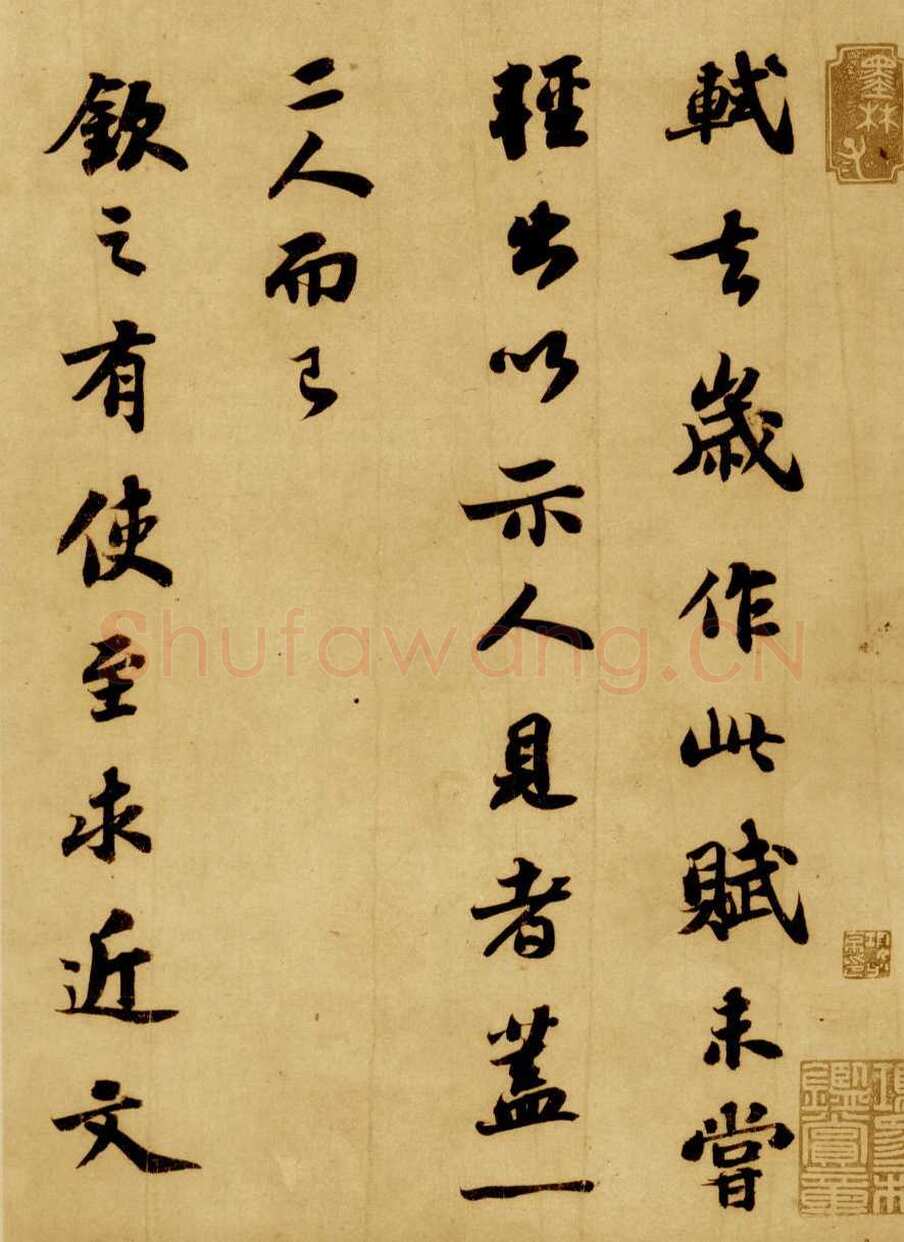 軾去歲作此賦未嘗
輕出以示人見者蓋一
二人而已
欽之有使至求近文
墨林
鑑賞章
Shufawang.CN